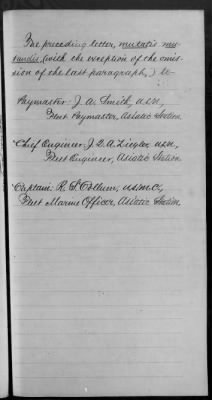 The preceding letter, mutatis mu-
tandis (with the exception of the omis-
sion of the last paragraph,) to—
Paymaster J. A. Smith, USN,
Fleet Paymaster, Asiatic Station
Chief Engineer J. Q. A. Ziegler USN,
Fleet Engineer, Asiatic Station
Captain R. S. Collum, USMC,
Fleet Marine Officer, Asiatic Station